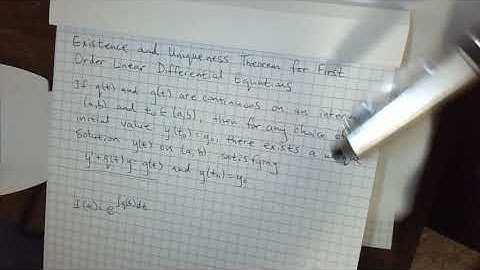 Existence and Uniqueness Theorem for First
Order Linear Differential Equations
If q(t) and g(t) are continuous on an
(a,b) and t₀ ∈ (a,b), then for any choice of
initial value y(t₀)=y₀, there exists a unique
solution y(t) on (a,b) satisfying
y'+q(t)y=g(t) and y(t₀)=y₀
I(t)=e^∫q(t)dt